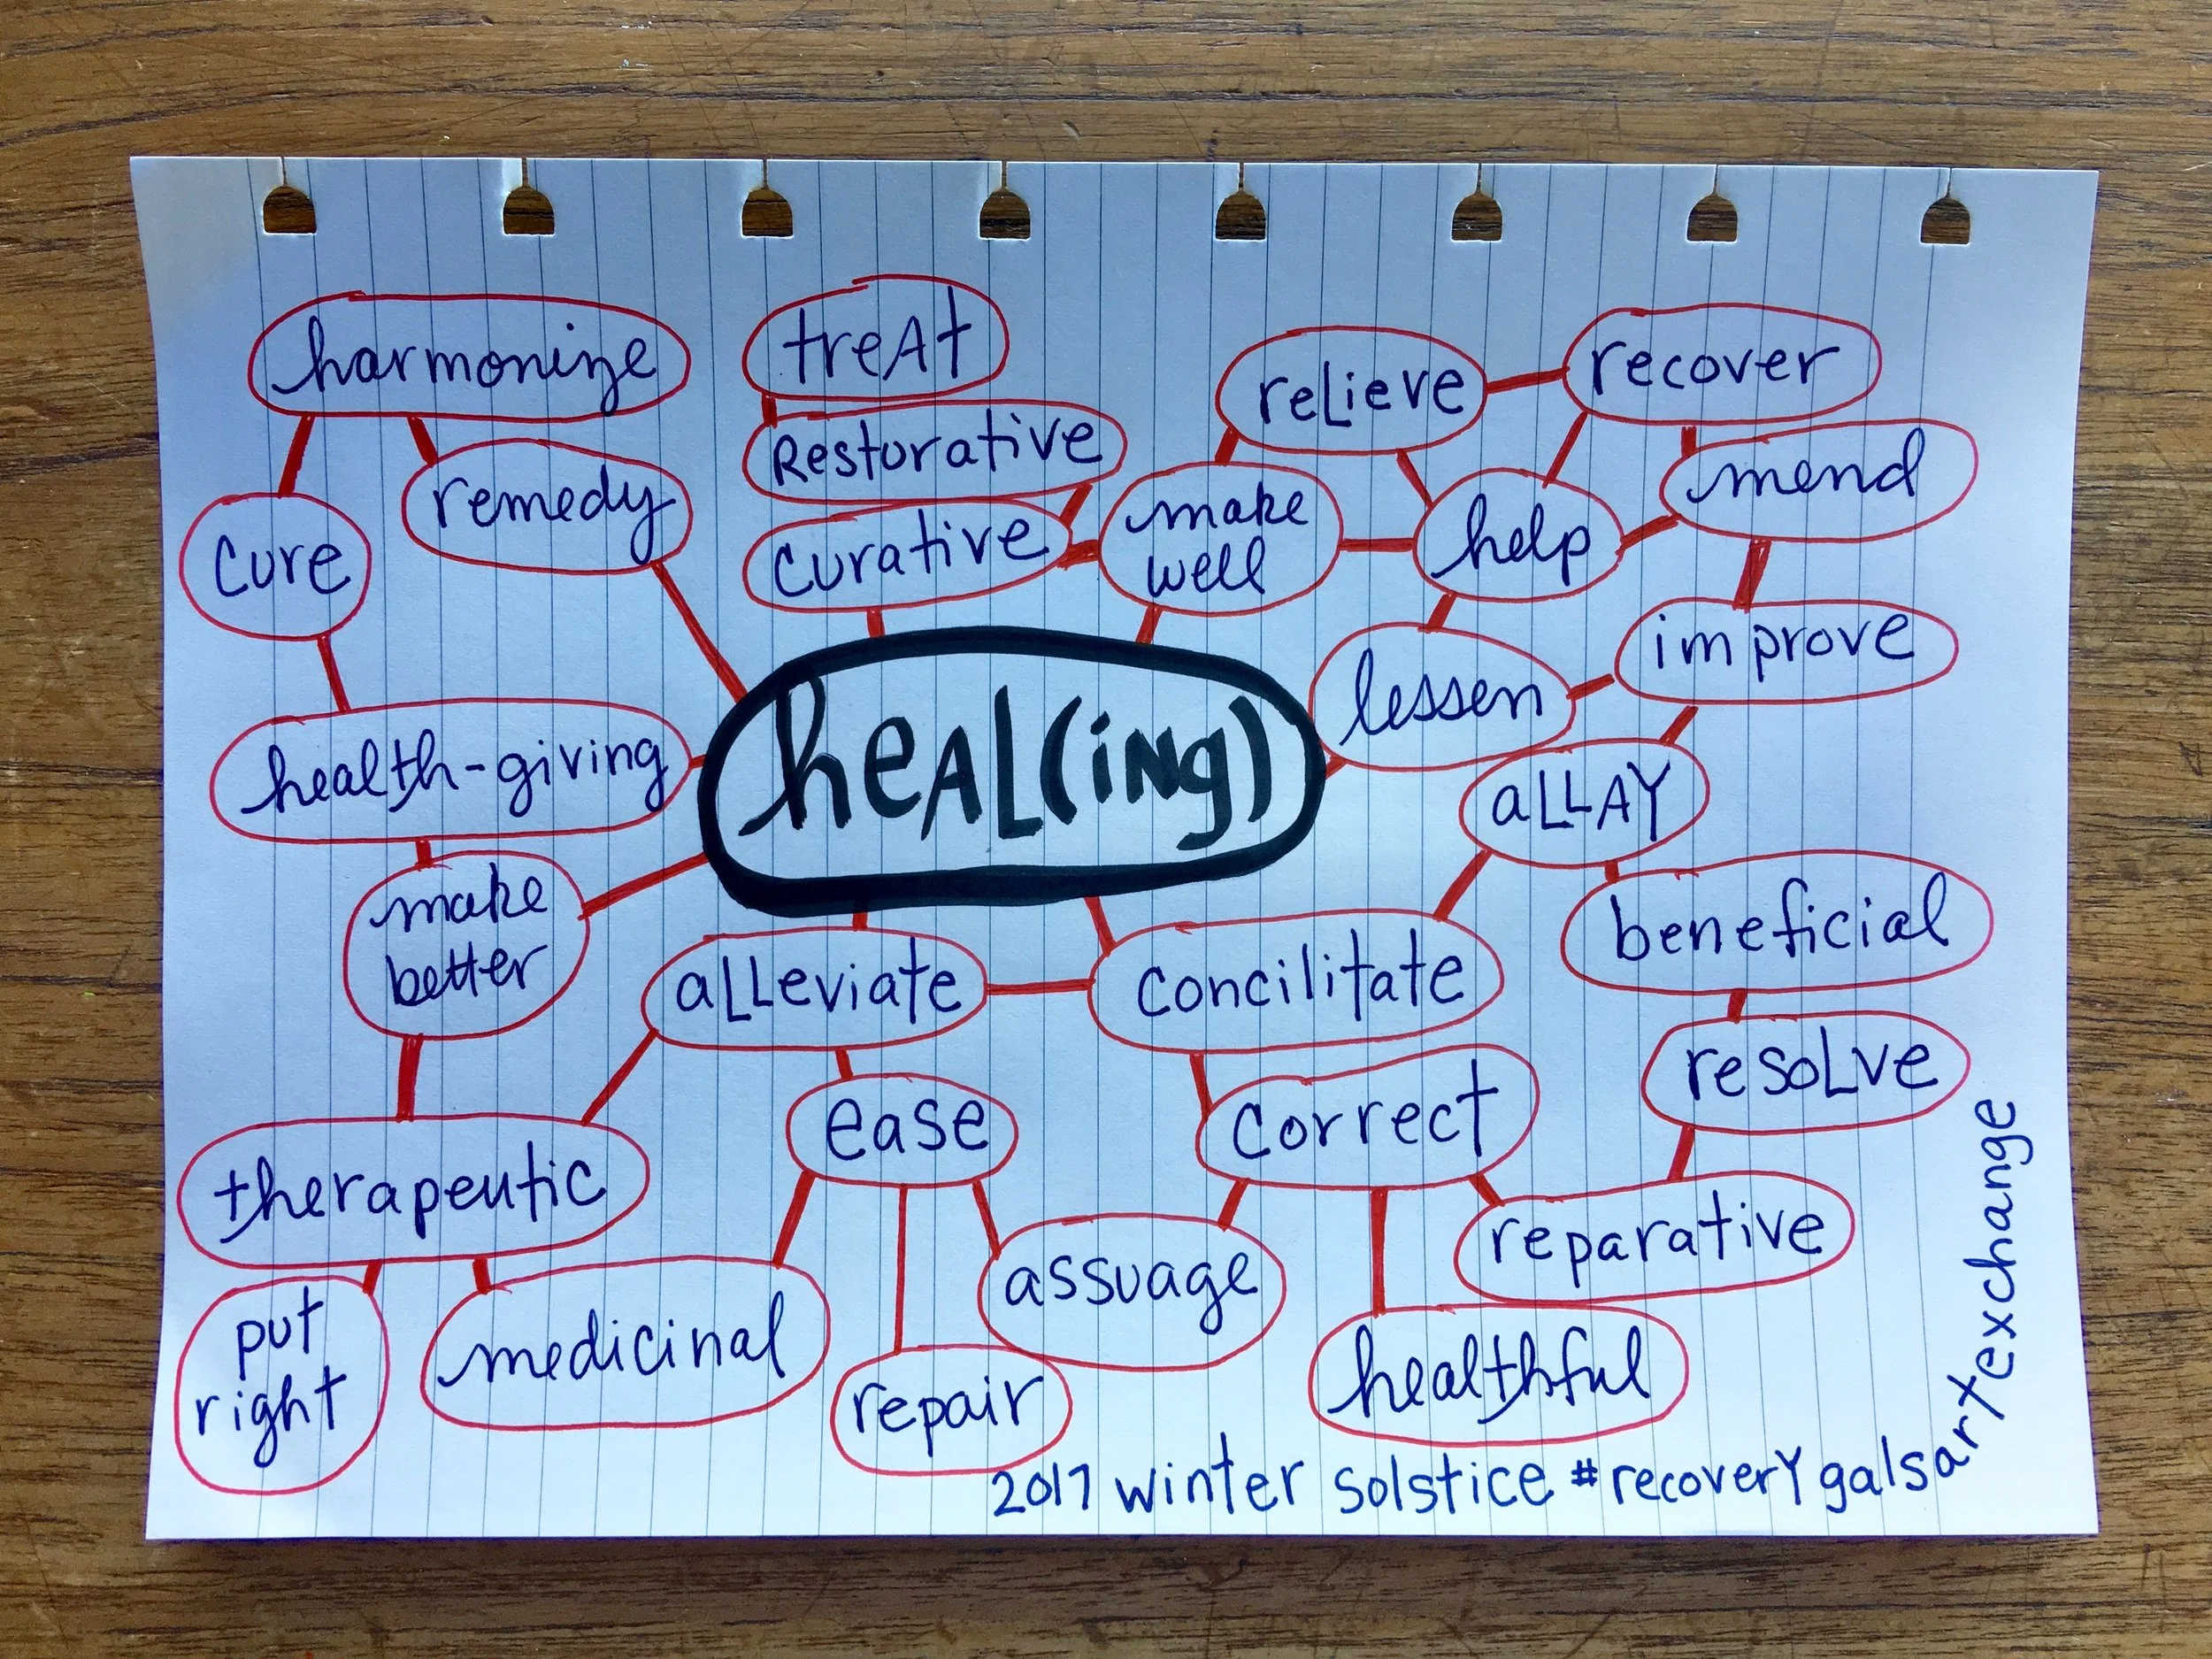 harmonize
treAt
reLieve
recover
Restorative
mend
remedy
cure
curative
make
well
help
improve
lessen
heAL(iNg)
health-giving
aLLAY
make
better
aLLeviate
concilitate
beneficial
resoLve
ease
correct
therapeutic
assuage
reparative
put
right
medicinal
repair
healthful
2017 winter solstice #recoverYgalsartexchange